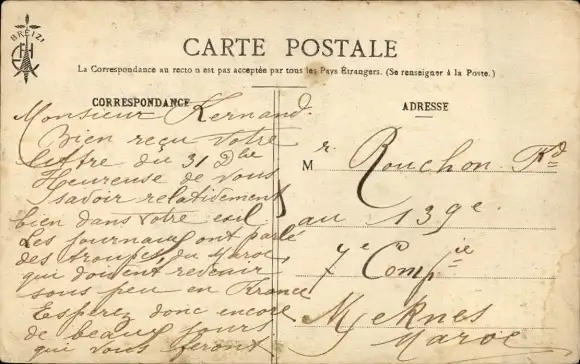 BREIZ
CARTE POSTALE
La Correspondance au recto n est pas acceptée par tous les Pays Étrangers. (Se renseigner à la Poste.)
CORRESPONDANCE
Monsieur
Bien reçu votre
lettre du 31 Xbre
Heureuse de vous
savoir relativement
bien dans votre exil.
Les journaux ont parlé
des troupes, du Maroc,
qui doivent revenir
sous peu en France
Esperez donc encore
de beaux jours
qui vous feront
ADRESSE
Mr Rouchon Rd
au 139e
7e Compie
Meknes
Maroc